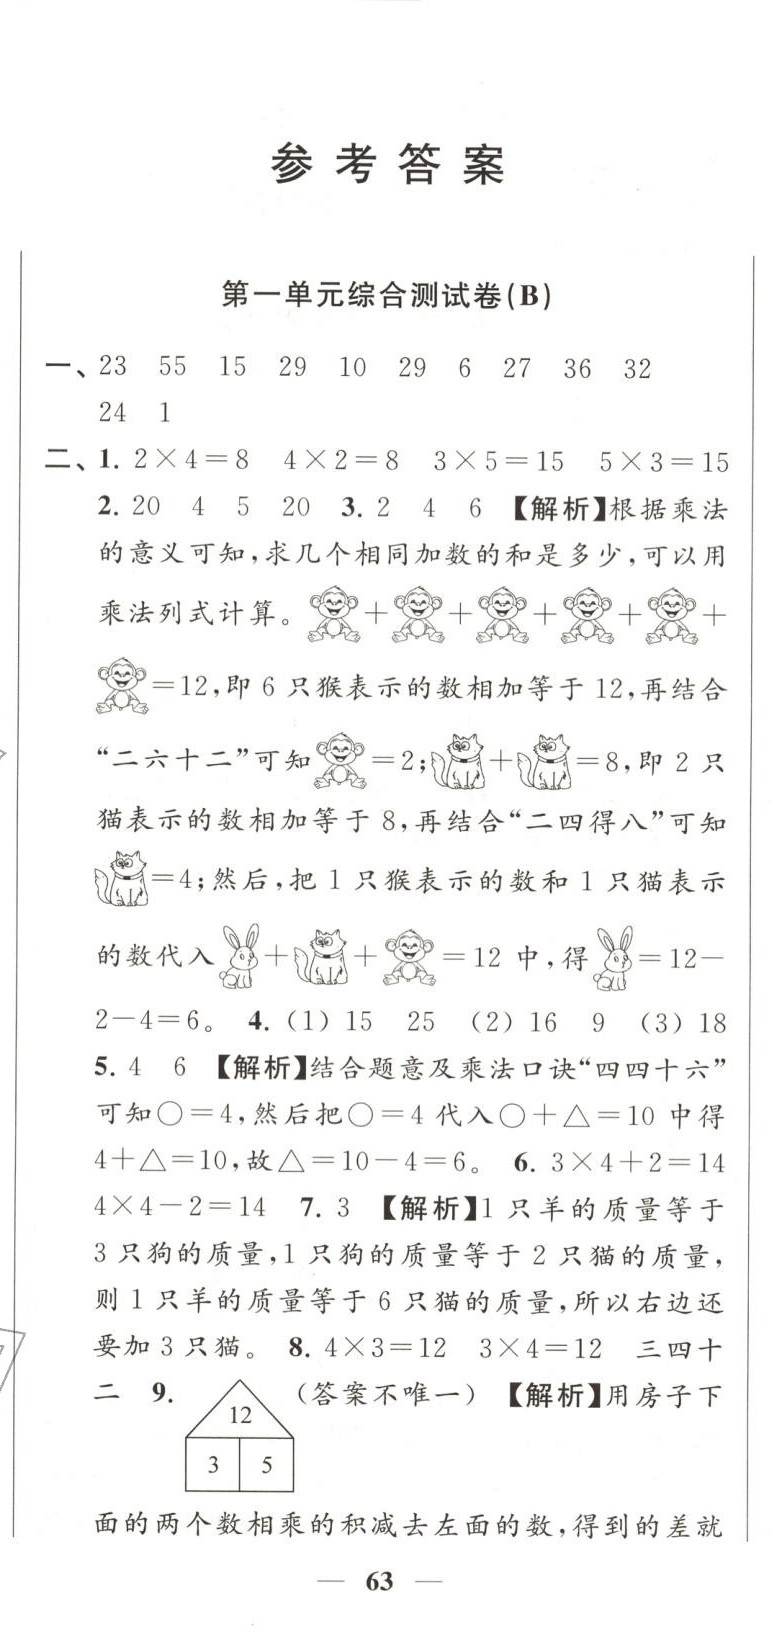 参考答案
第一单元综合测试卷(B)
一、23 55 15 29 10 29 6 27 36 32
24 1
二、1. 2×4=8 4×2=8 3×5=15 5×3=15
2. 20 4 5 20 3. 2 4 6 【解析】根据乘法
的意义可知,求几个相同加数的和是多少,可以用
乘法列式计算。 + + + + +
=12,即 6 只猴表示的数相加等于 12,再结合
“二六十二”可知 =2; + =8,即 2 只
猫表示的数相加等于 8,再结合“二四得八”可知
=4;然后,把 1 只猴表示的数和 1 只猫表示
的数代入 + + =12 中,得 =12-
2-4=6。 4. (1) 15 25 (2) 16 9 (3) 18
5. 4 6 【解析】结合题意及乘法口诀“四四十六”
可知○=4,然后把○=4 代入○+△=10 中得
4+△=10,故△=10-4=6。 6. 3×4+2=14
4×4-2=14 7. 3 【解析】1 只羊的质量等于
3 只狗的质量,1 只狗的质量等于 2 只猫的质量,
则 1 只羊的质量等于 6 只猫的质量,所以右边还
要加 3 只猫。 8. 4×3=12 3×4=12 三四十
二 9. (答案不唯一) 【解析】用房子下
12
3 5
面的两个数相乘的积减去左面的数,得到的差就
— 63 —